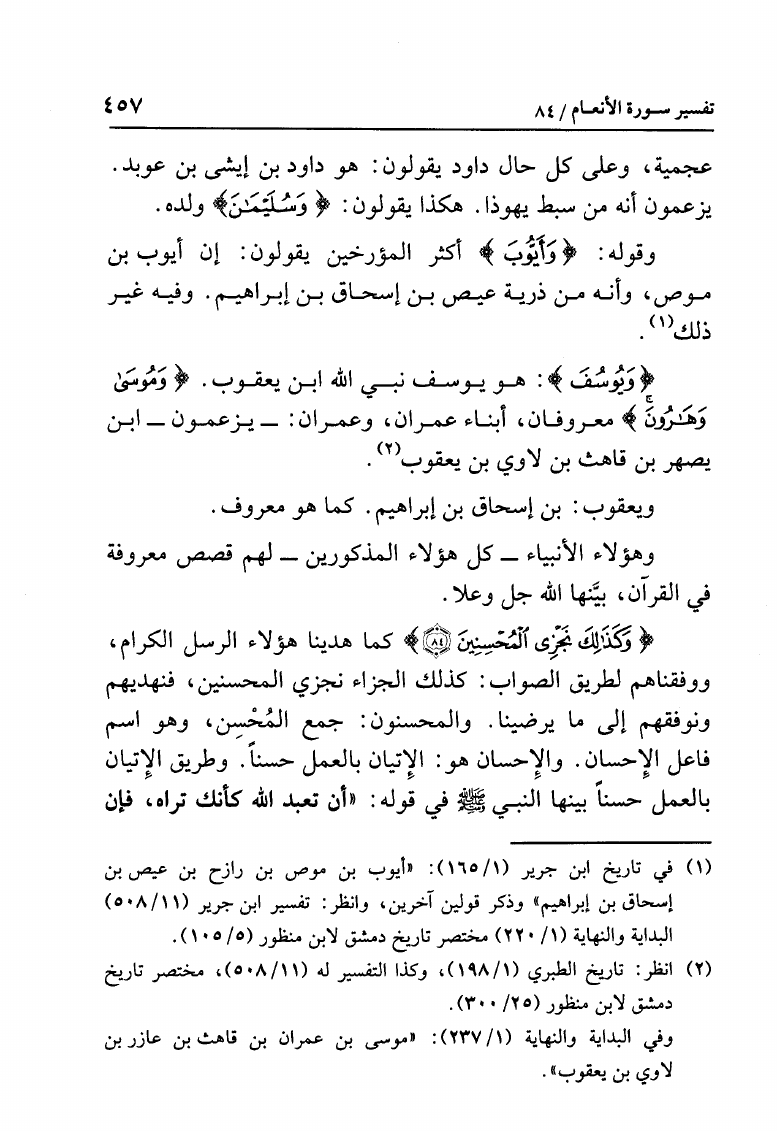 تفسير سورة الأنعام / ٨٤
٤٥٧
عجمية، وعلى كل حال داود يقولون: هو داود بن إيشى بن عوبد.
يزعمون أنه من سبط يهوذا. هكذا يقولون: ﴿ وَسُلَيْمَٰنَ﴾ ولده.
وقوله: ﴿وَأَيُّوبَ ﴾ أكثر المؤرخين يقولون: إن أيوب بن
موص، وأنه من ذرية عيص بن إسحاق بن إبراهيم. وفيه غير
ذلك(١).
﴿وَيُوسُفَ ﴾: هو يوسف نبي الله ابن يعقوب. ﴿ وَمُوسَىٰ
وَهَٰرُونَۚ ﴾ معروفان، أبناء عمران، وعمران: ــ يزعمون ــ ابن
يصهر بن قاهث بن لاوي بن يعقوب(٢).
ويعقوب: بن إسحاق بن إبراهيم. كما هو معروف.
وهؤلاء الأنبياء ــ كل هؤلاء المذكورين ــ لهم قصص معروفة
في القرآن، بيَّنها الله جل وعلا.
﴿ وَكَذَٰلِكَ نَجْزِى ٱلْمُحْسِنِينَ ٨٤﴾ كما هدينا هؤلاء الرسل الكرام،
ووفقناهم لطريق الصواب: كذلك الجزاء نجزي المحسنين، فنهديهم
ونوفقهم إلى ما يرضينا. والمحسنون: جمع المُحْسِن، وهو اسم
فاعل الإِحسان. والإِحسان هو: الإِتيان بالعمل حسناً. وطريق الإِتيان
بالعمل حسناً بينها النبي ﷺ في قوله: «أن تعبد الله كأنك تراه، فإن
(١) في تاريخ ابن جرير (١/١٦٥): «أيوب بن موص بن رازح بن عيص بن
إسحاق بن إبراهيم» وذكر قولين آخرين، وانظر: تفسير ابن جرير (١١/٥٠٨)
البداية والنهاية (١/٢٢٠) مختصر تاريخ دمشق لابن منظور (٥/١٠٥).
(٢) انظر: تاريخ الطبري (١/١٩٨)، وكذا التفسير له (١١/٥٠٨)، مختصر تاريخ
دمشق لابن منظور (٢٥/٣٠٠).
وفي البداية والنهاية (١/٢٣٧): «موسى بن عمران بن قاهث بن عازر بن
لاوي بن يعقوب».